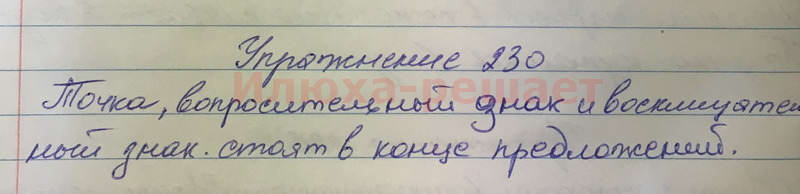 Упражнение 230
Илюха-решает
Точка, вопросительный знак и восклицател
ный знак. стоят в конце предложений.